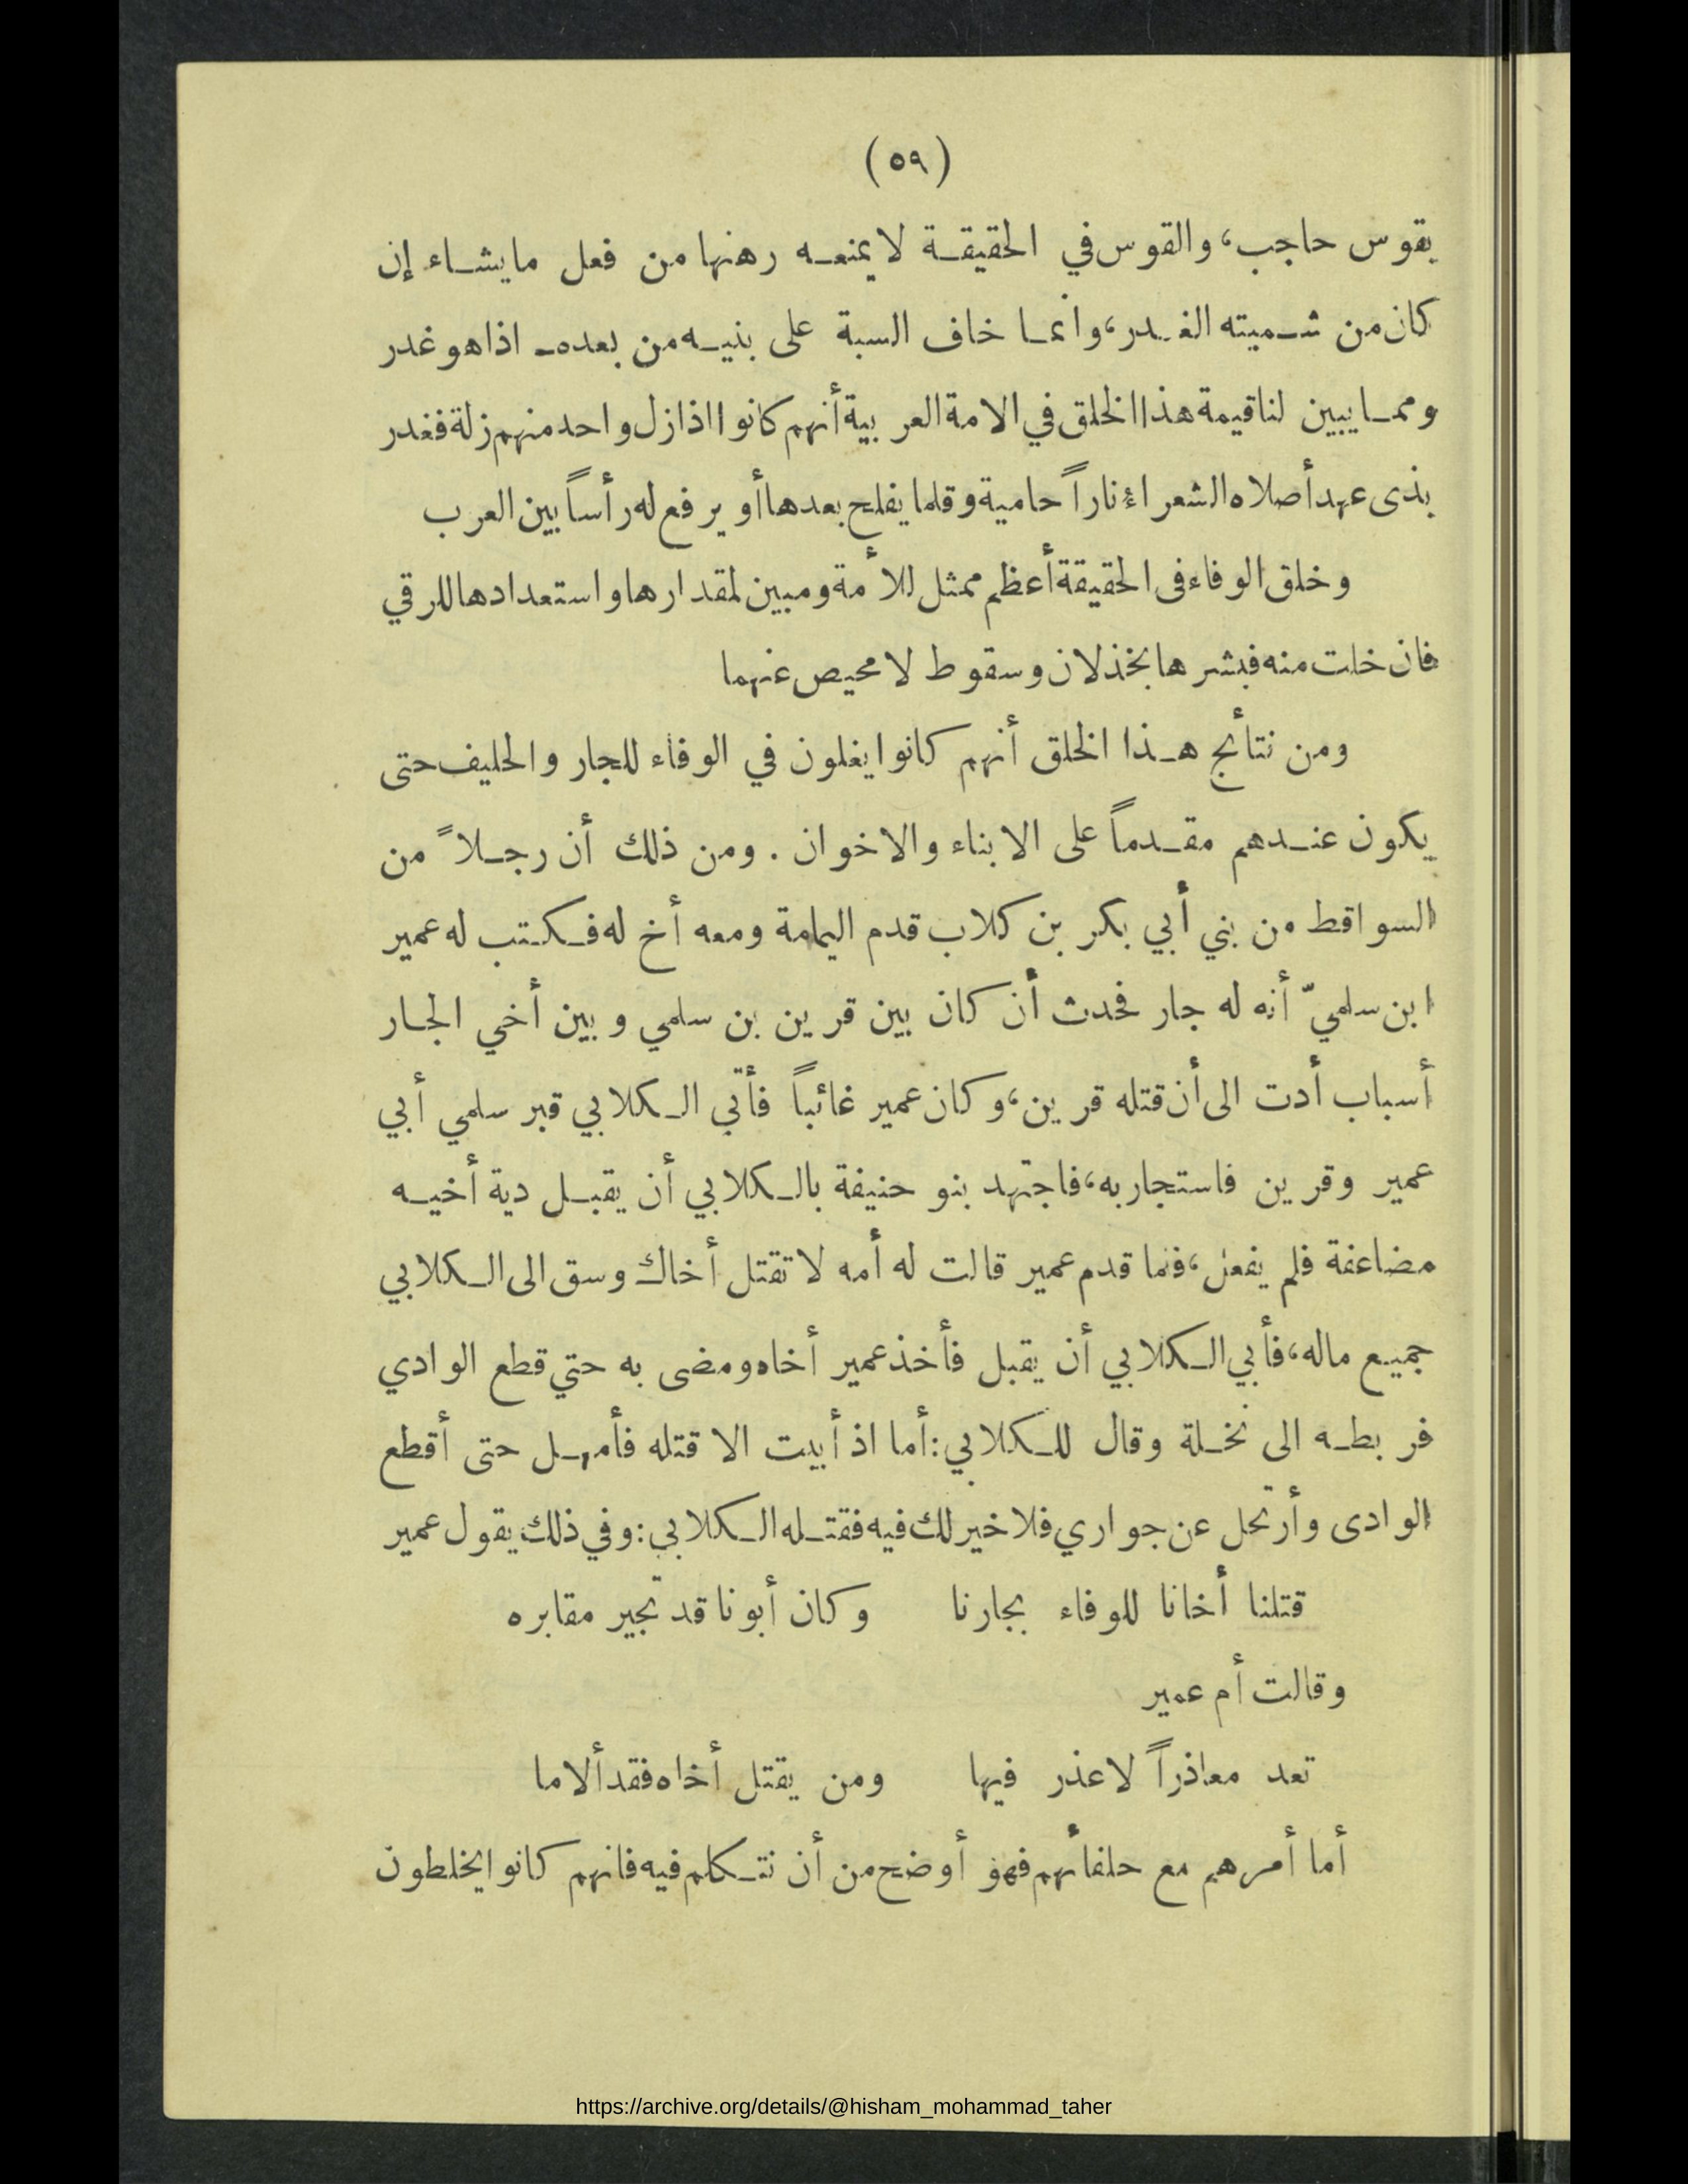 (٥٩)
بقوس حاجب، والقوس في الحقيقة لا يمنعه رهنها من فعل ما يشاء إن
كان من شميته الغدر، وانما خاف السبة على بنيه من بعده ـ اذا هو غدر
ومما يبين لنا قيمة هذا الخلق في الامة العربية أنهم كانوا اذا زل واحد منهم زلة فغدر
بذى عهد أصلاه الشعراء ناراً حامية وقلما يفلح بعدها أو يرفع له رأساً بين العرب
وخلق الوفاء فى الحقيقة أعظم ممثل للأمة ومبين لمقدارها واستعدادها للرقي
فان خلت منه فبشرها بخذلان وسقوط لا محيص عنهما
ومن نتائج هذا الخلق أنهم كانوا يغلون في الوفاء للجار والحليف حتى
يكون عندهم مقدماً على الابناء والاخوان . ومن ذلك أن رجلاً من
السواقط من بني أبي بكر بن كلاب قدم اليمامة ومعه أخ له فكتب له عمير
ابن سلميّ أنه له جار فحدث أن كان بين قرين بن سلمي وبين أخي الجار
أسباب أدت الى أن قتله قرين، وكان عمير غائباً فأتي الكلابي قبر سلمي أبي
عمير وقرين فاستجار به، فاجتهد بنو حنيفة بالكلابي أن يقبل دية أخيه
مضاعفة فلم يفعل، فلما قدم عمير قالت له أمه لا تقتل أخاك وسق الى الكلابي
جميع ماله، فأبي الكلابي أن يقبل فأخذ عمير أخاه ومضى به حتي قطع الوادي
فربطه الى نخلة وقال للكلابي: أما اذ أبيت الا قتله فأمهل حتى أقطع
الوادى وأرتحل عن جواري فلا خير لك فيه فقتله الكلابي: وفي ذلك يقول عمير
قتلنا أخانا للوفاء بجارنا وكان أبونا قد تجير مقابره
وقالت أم عمير
تعد معاذراً لا عذر فيها ومن يقتل أخاه فقد ألاما
أما أمرهم مع حلفائهم فهو أوضح من أن نتكلم فيه فانهم كانوا يخلطون
https://archive.org/details/@hisham_mohammad_taher